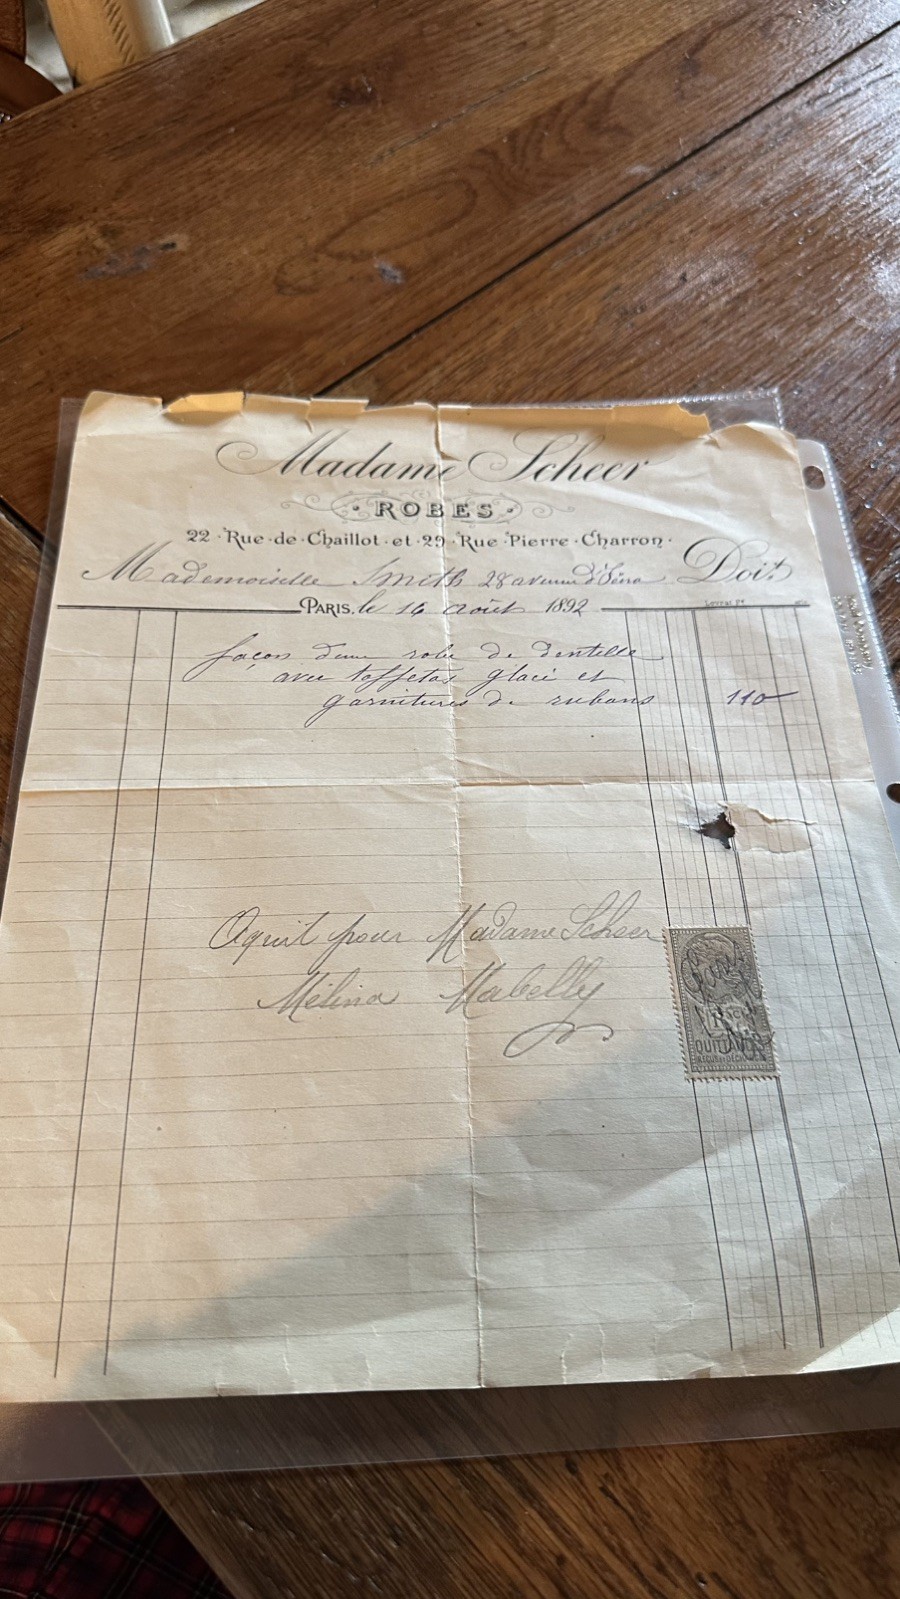 Madame Scheer
ROBES
22 · Rue · de · Chaillot · et · 29 · Rue · Pierre · Charron ·
Mademoiselle Smith 28 avenue d'Iéna Doit
PARIS, le 16 août 1892
façon d'une robe de dentelle
avec taffetas glacé et
garnitures de rubans 110
Aquit pour Madame Scheer
Mélina Mabelly
QUITTANCES